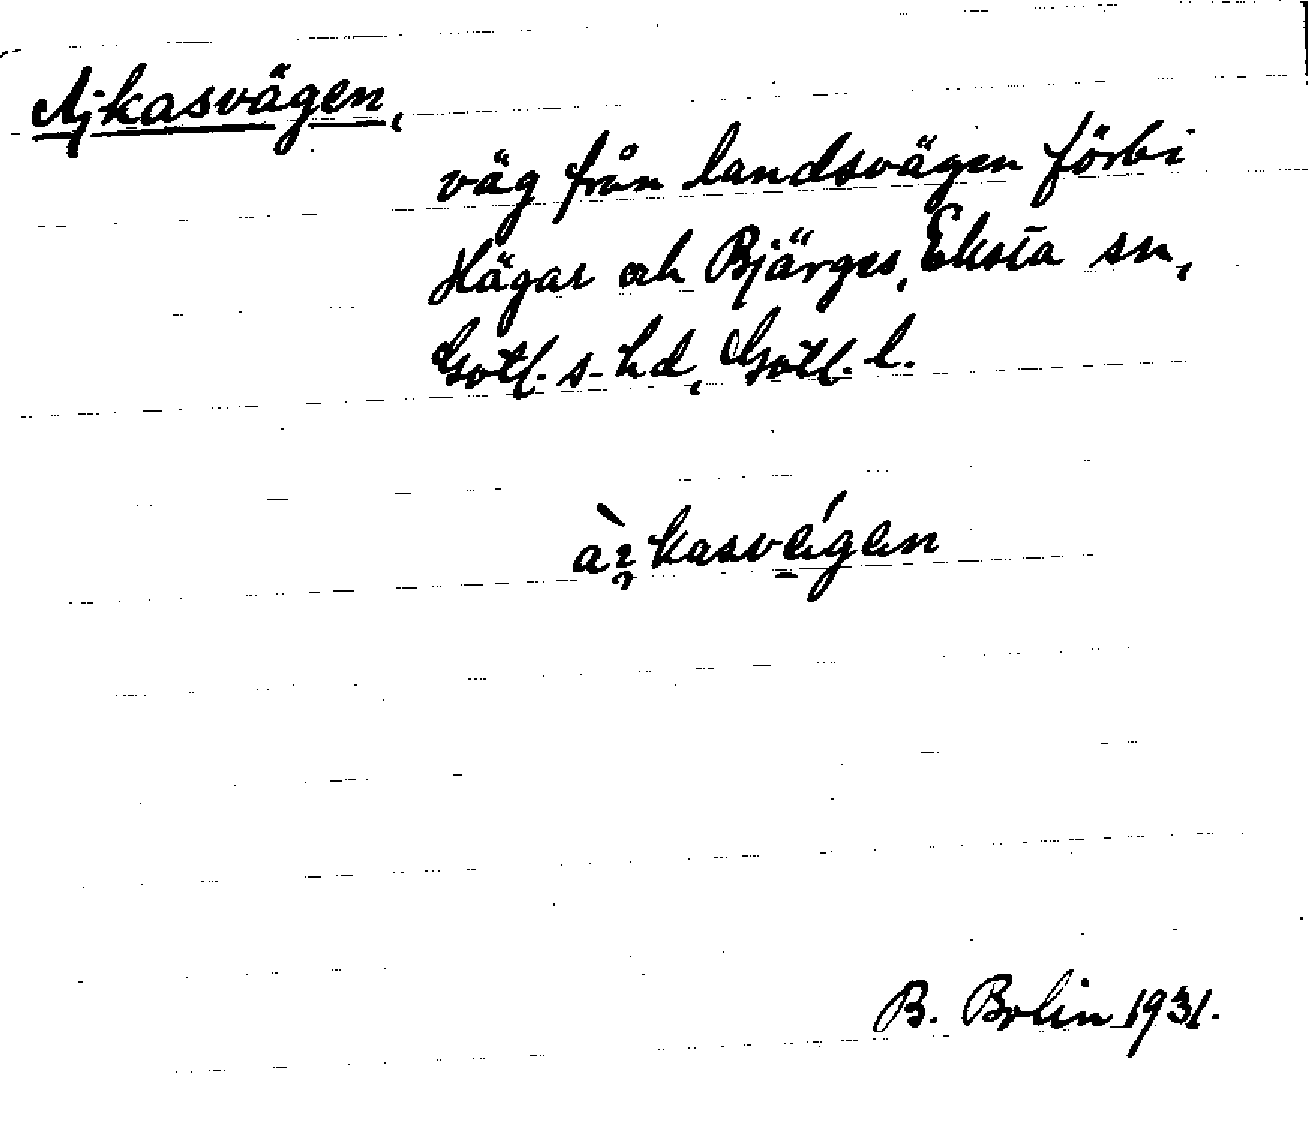 Ajkasvägen,
väg från landsvägen förbi
Hägar och Bjärges, Eksta sn,
Gotl. s. hd, Gotl. l.
B. Bolin 1931.